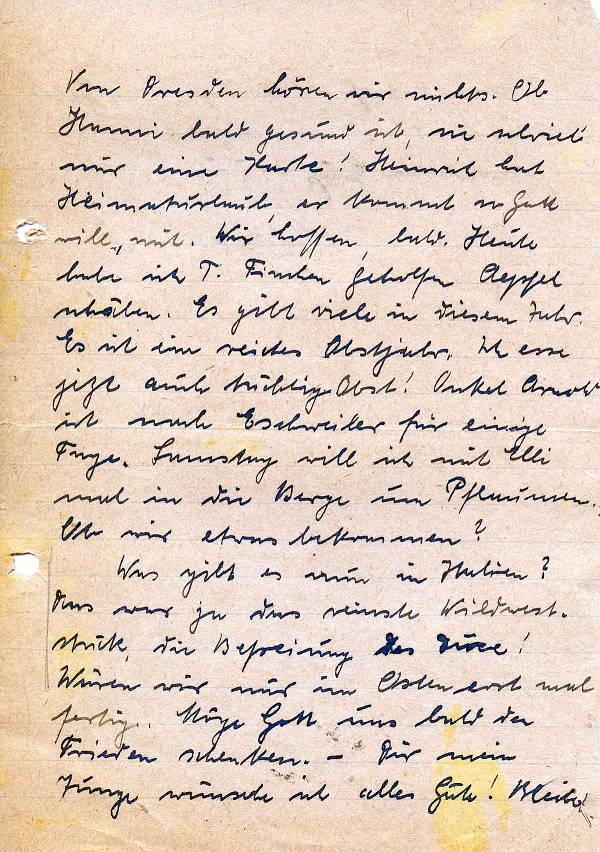 Von Dresden hören wir nichts. Ob
Hanni bald gesund ist, sie schrieb
nur eine Karte! Heinrich hat
Heimaturlaub, er kommt so Gott
will, mit. Wir hoffen, bald. Heute
habe ich T. Finchen geholfen Aepfel
schälen. Es gibt viele in diesem Jahr.
Es ist ein reiches Obstjahr. Ich esse
jetzt auch tüchtig Obst! Onkel Arnold
ist nach Eschweiler für einige
Tage. Samstag will ich mit Elli
mal in die Berge um Pflaumen.
Ob wir etwas bekommen?
Was gibt es nun in Italien?
Das war ja das reinste Wildwest-
stück, die Befreiung des Duce!
Wären wir nur im Osten erst mal
fertig.. Möge Gott uns bald den
Frieden schenken. – Dir mein
Junge wünsche ich alles Gute! Bleibe